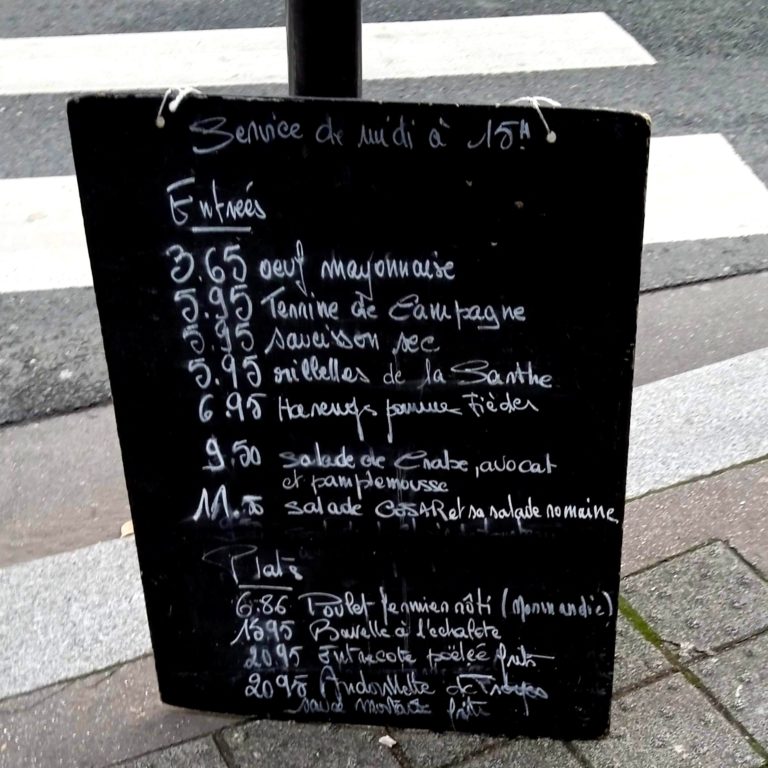 Service de midi à 15H
Entrées
3.65 oeuf mayonnaise
5.95 Terrine de Campagne
5.95 saucisson sec
5.95 rillettes de la Sarthe
6.95 Harengs pomme
9.50 salade de Crabe, avocat
et pamplemousse
salade CeSAR et sa salade romaine
Plats
Poulet fermier rôti (Normandie)
15.95 Bavette à l'echalote
20.95 Entrecote poêlée frites
20.95 Andouillette de Troyes
sauce moutarde frite